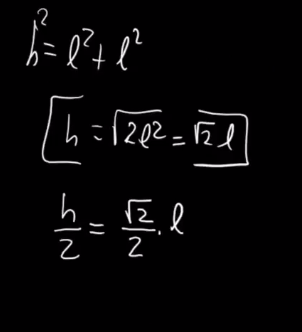 h² = l² + l²
h = √2l² = √2 l
h/2 = √2/2 . l